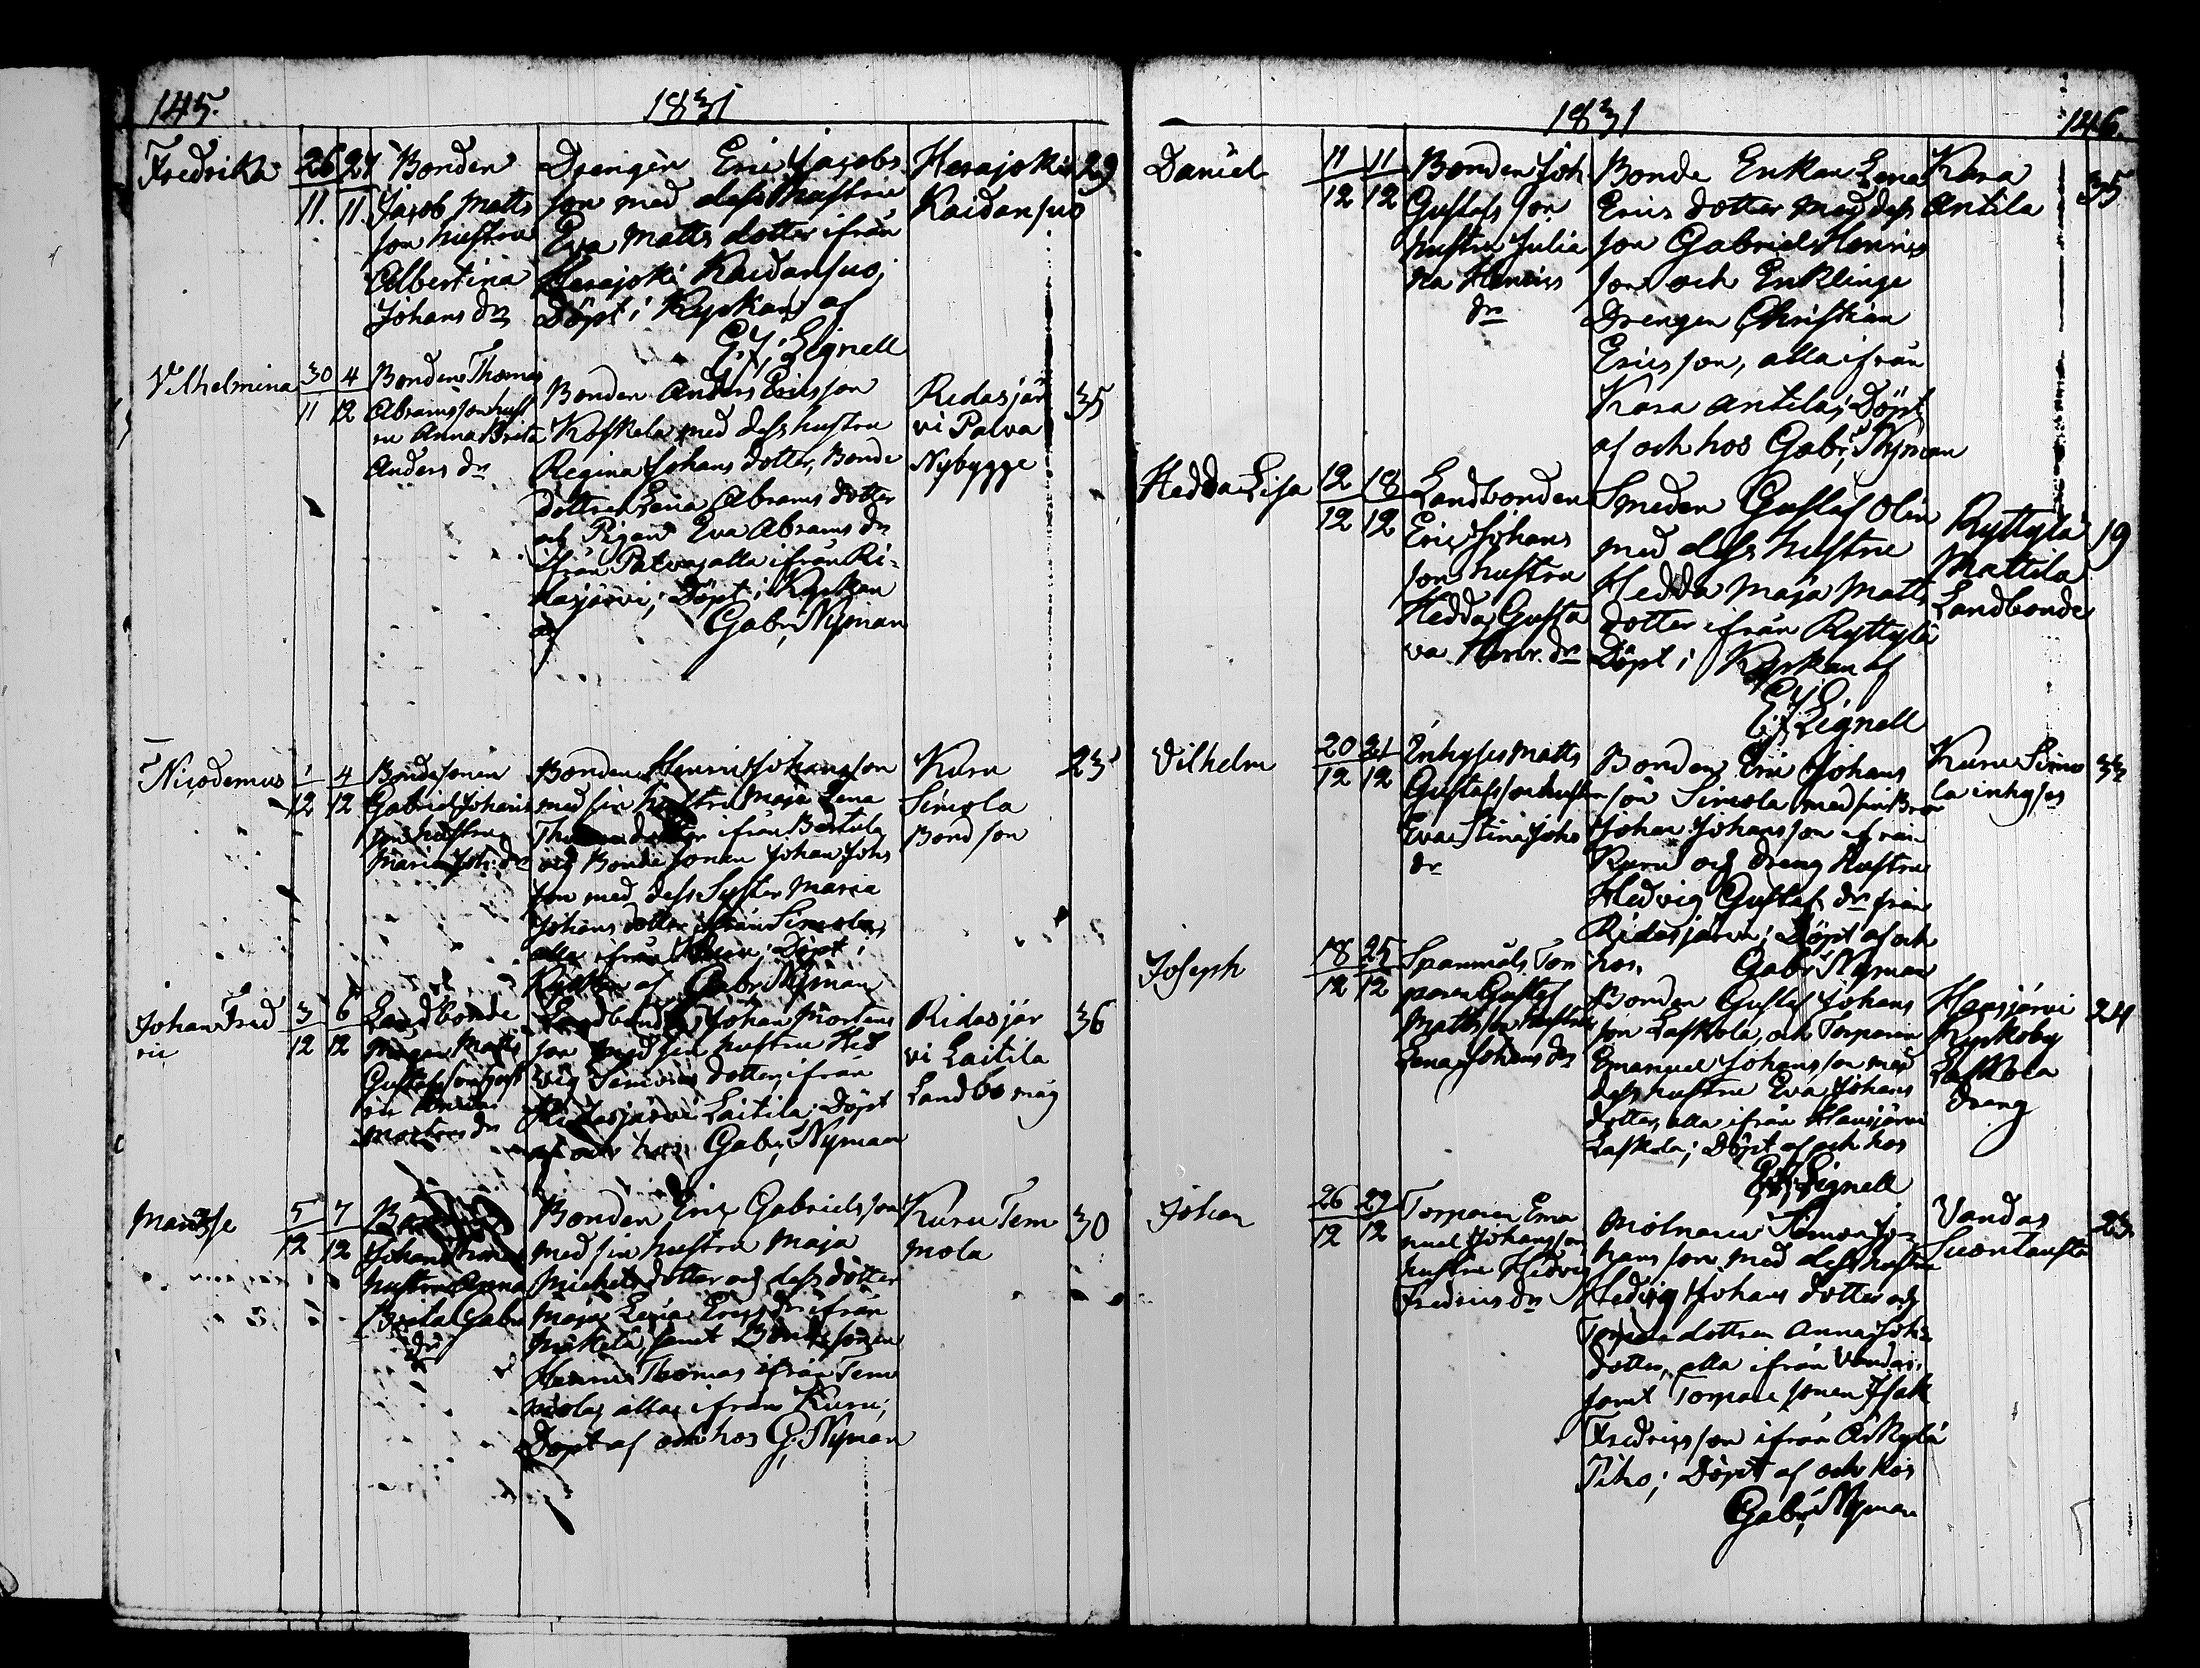 145.
1831
Fredrika
26 27
11. 11.
Bonden
Jacob Matts
son hustru
Albertina
Johans dr
Drengen Eric Jacobs
son med dess hustru
Eva Matts dotter ifrån
Herajoki Kaidansuo;
Döpt i Kyrkan af
G. J. Lignell
Herajoki
Kaidansuo
29
Vilhelmina
30 4
11 12
Bonden Thomas
Abramsson hust
ru Anna Brita
Anders dr
Bonden Anders Ericsson
Koskela med dess hustru
Regina Johans dotter, Bonde
dottren Lena Abrams dotter
och Pigan Eva Abrams dr
ifrån Palva, alla ifrån Ri-
dasjärvi; Döpt i Kyrkan
af Gabr. Nyman
Ridasjär
vi Palva
Nybygge
35
Nicodemus
1 4
12 12
Bondesonen
Gabriel Johans
son hustru
Maria Joh. dr
Bonden Henric Johansson
med sin hustru Maja Lena
dotter ifrån Bertula
och Bonde sonen Johan Johs
son med dess Syster Maria
Johans dotter ifrån Simola,
alla ifrån Kuru; Döpt i
Kyrkan af Gabr. Nyman
Kuru
Simola
Bond son
23
Johan Fred
ric
3 6
12 12
Landbonde
Mågen Matts
Gustafsson hust
ru
Mortens dr
Landbonden Johan Mortens
son med sin hustru Hed
vig Simons dotter, ifrån
Ridasjärvi Laitila; Döpt
af och hos Gabr. Nyman
Ridasjär
vi Laitila
Landbo måg
36
Manasse
5 7
12 12
Johan
hustru Anna
Brita Gabr
dr
Bonden Eric Gabrielsson
med sin hustru Maja
Michels dotter och dess dotter
Maja Lena Erics dr ifrån
Mikkela, samt Bondesonen
Henric Thomas ifrån Tem
mola, alla ifrån Kuru;
Döpt af och hos G. Nyman
Kuru Tem
mola
30
1831
146.
Daniel
11 11
12 12
Bonden Joh
Gustafs son
hustru Julia
na Henrics
dr
Bonde Enkan Lena
Erics dotter med dess
son Gabriel Henrics
son och Enklinge
Drengen Christian
Ericsson, alla ifrån
Kara Antila; Döpt
af och hos Gabr. Nyman
Kara
Antila
35
Hedda Lisa
12 18
12 12
Landbonden
Eric Johans
son hustru
Hedda Gusta
va Henr. dr
Smeden Gustaf Olin
med dess hustru
Hedda Maja Matts
dotter ifrån Ryttylä
Döpt i Kyrkan af
G. J. Lignell
Ryttylä
Mattila
Landbonde
19
Vilhelm
20 21
12 12
Inhyses Matts
Gustafsson hustru
Eva Stina Johs
dr
Bonden Eric Johans
son Simola med sin Bror
Johan Johansson ifrån
Kuru och dreng hustru
Hedvig Gustafs dr från
Ridasjärvi; Döpt af och
hos Gabr. Nyman
Kuru Simo
la inhyses
33
Joseph
18 25
12 12
Spanmåls Tor
paren Gustaf
Mattsson hustru
Lena Johans dr
Bonden Gustaf Johans
son Laskola, och Torparen
Emanuel Johansson med
dess hustru Eva Johans
dotter, alla ifrån Hausjärvi
Laskola; Döpt af och hos
G. J. Lignell
Hausjärvi
Kyrkoby
Laskola
dreng
24
Johan
26 29
12 12
Torparen Ema
nuel Johansson
hustru Hedvig
Fredrics dr
Molnaren Simon Jo-
hans son med dess hustru
Hedvig Johans dotter och
Torpare dottren Anna Johs
dotter, alla ifrån Vandas,
samt Torpare sonen Isak
Fredricsson ifrån Erkylä
Tiho; Döpt af och hos
Gabr. Nyman
Vandas
Suontausta